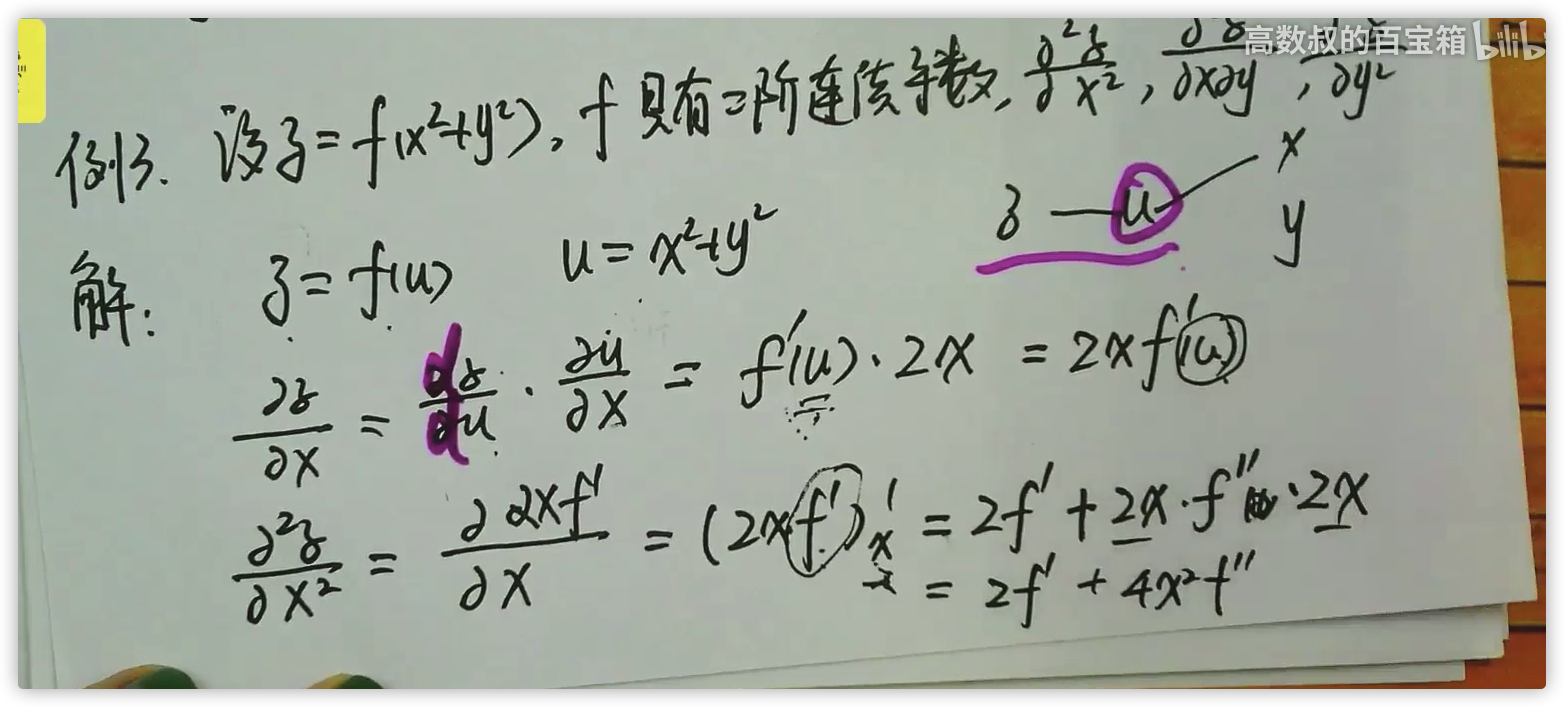 高数叔的百宝箱 bilibili
例3. 设z=f(x²+y²), f 具有二阶连续导数, ∂²z/∂x², ∂²z/∂x∂y, ∂²z/∂y²
解: z=f(u) u=x²+y²
z — u — x
y
∂z/∂x = dz/du · ∂u/∂x = f'(u)·2x = 2xf'(u)
∂²z/∂x² = ∂2xf'/∂x = (2xf')'x = 2f' + 2x·f''·2x
= 2f' + 4x²f''